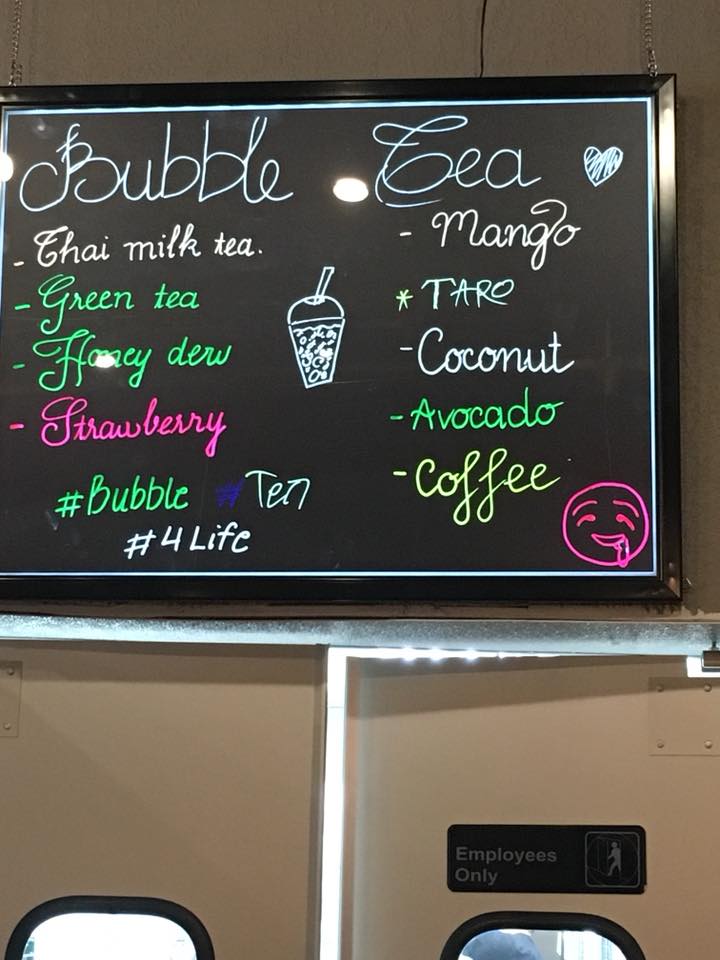 Bubble Tea
- Thai milk tea.
- Green tea
- Honey dew
- Strawberry
- Mango
* TARO
- Coconut
- Avocado
- Coffee
#Bubble #Tea
#4 Life
Employees
Only